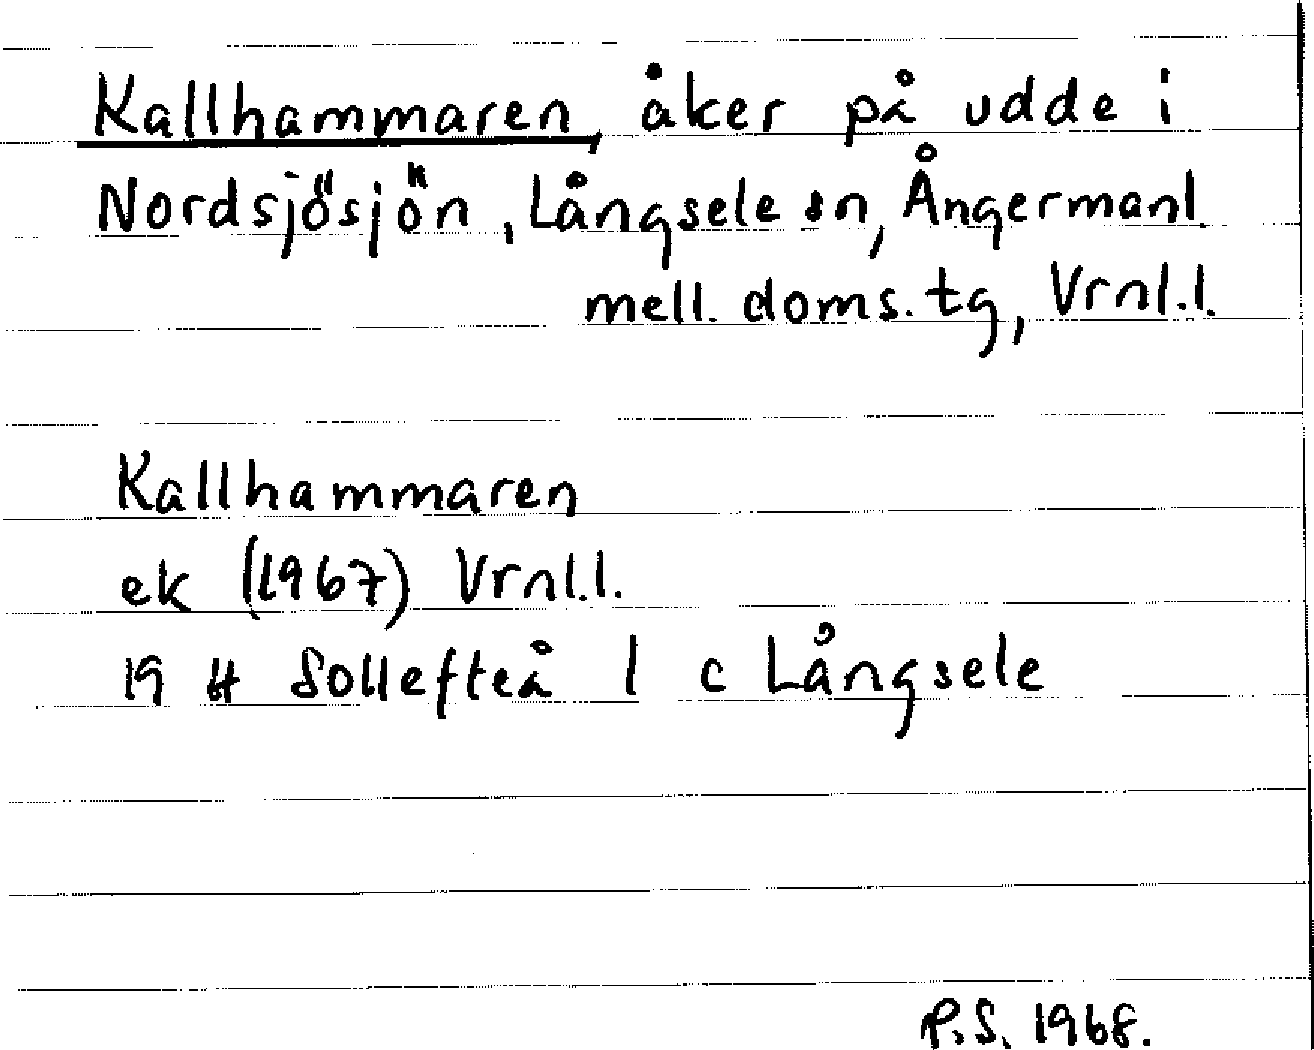 Kallhammaren, åker på udde i
Nordsjösjön, Långsele sn, Ångermanl.
mell. doms. tg, Vrnl.l.
Kallhammaren
ek (1967) Vrnl.l.
19 H Sollefteå 1 c Långsele
P.S. 1968.